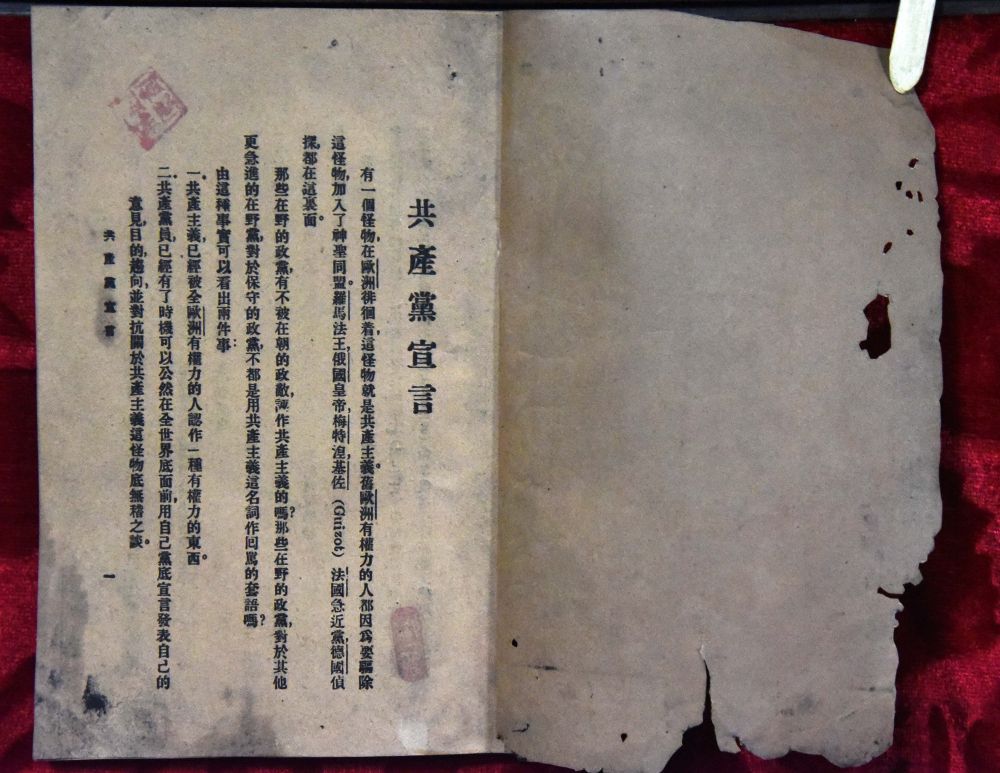 共產黨宣言
有一個怪物，在歐洲徘徊着，這怪物就是共產主義。舊歐洲有權力的人都因爲要驅除
這怪物，加入了神聖同盟。羅馬法王，俄國皇帝，梅特涅，基佐（Guizot）法國急近黨，德國偵
探，都在這裏面。
那些在野的政黨，有不被在朝的政敵，誣作共產主義的嗎？那些在野的政黨，對於其他
更急進的在野黨，對於保守的政黨，不都是用共產主義這名詞作回罵的套語嗎？
由這種事實可以看出兩件事：
一．共產主義，已經被全歐洲有權力的人認作一種有權力的東西。
二．共產黨員，已經有了時機可以公然在全世界底面前，用自己黨底宣言發表自己的
意見，目的，趨向，並對抗關於共產主義這怪物底無稽之談。
共產黨宣言
一